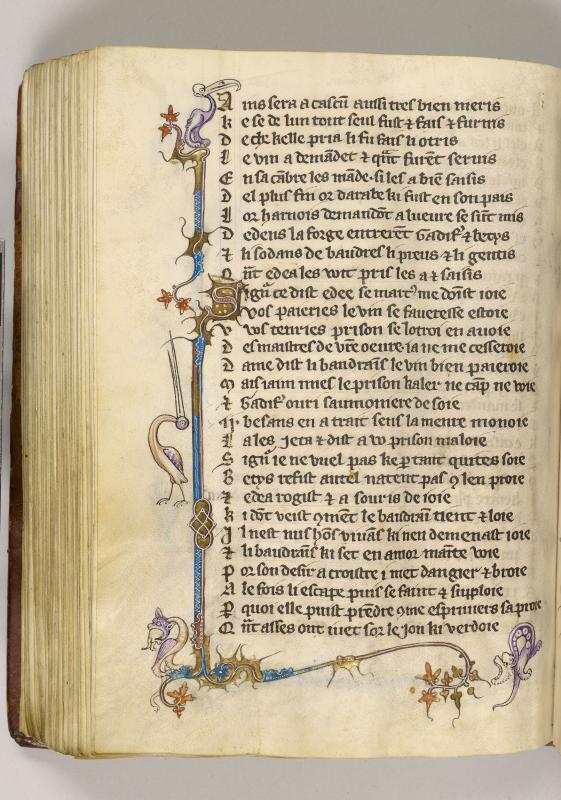 A ins sera a cascū aussi tres bien meris
k e se de lun tout seul fust ⁊ fais ⁊ furnis
D e che kelle pria li fu fais li otris
L e vin a demādet ⁊ qnt furēt seruis
E n sa cābre les māde · si les a biē saisis
D el plus fin or darabe ki fust en son pais
L or harnois demandōt a lueure se sūt mis
D edens la forge entrerēt Gadif ⁊ betys
⁊ li sodans de baudres li preus ⁊ li gentis
Q nt edea les voit pris les a ⁊ saisis
S ignr ce dist edee se marcs me doīst ioie
vos paieries le vin se faueresse estoie
v os tenries prison se lotroi en auoie
D es maistres de vre oeure · ia ne me cesseroie
D ame dist li baudrains le vin bien paieroie
M ais iaim mies le prison kaler ne cāp ne voie
⁊ Gadif ouri saumoniere de soie
II · besans en a trait sens la menre monoie
L a les ieta ⁊ dist a vo prison maloie
S ignr ie ne vuel pas ke ptant quites soie
B etys refist autel natent pas ꝯ len proie
⁊ edea rogist ⁊ a souris de ioie
K i dōt veist ꝯmēt le baudrain tient ⁊ loie
I l nest nus hōs viuās ki nen demenast ioie
⁊ li baudrains ki set en amor mainte voie
P or son desir a croistre i met dangier ⁊ broie
A le fois li escape puis se faint ⁊ suploie
P quoi elle puist prēdre ꝯme espriuiers sa proie
Q nt asses ont iuet sor le jon ki verdoie